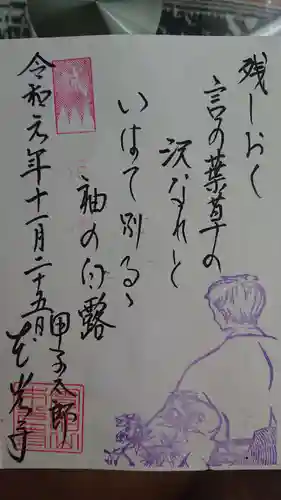 残しおく
言の葉草の
沢なれど
いはで別るゝ
袖の白露
甲子太郎
令和元年十一月二十五日